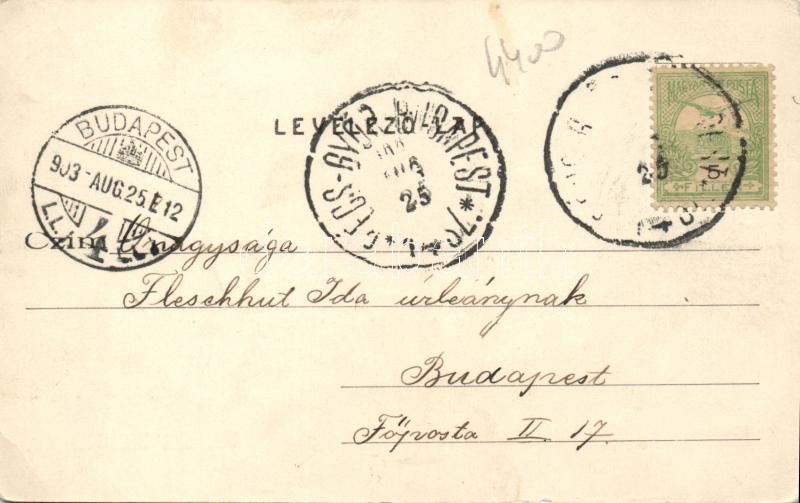 4400
LEVELEZŐ-LAP
BUDAPEST
903-AUG.25.E12
I.I.
BUDAPEST * 76
25
25
MAGYAR POSTA
5
FILLÉR
Czím Őnagysága
Fleschhut Ida úrleánynak
Budapest
Főposta II. 17.